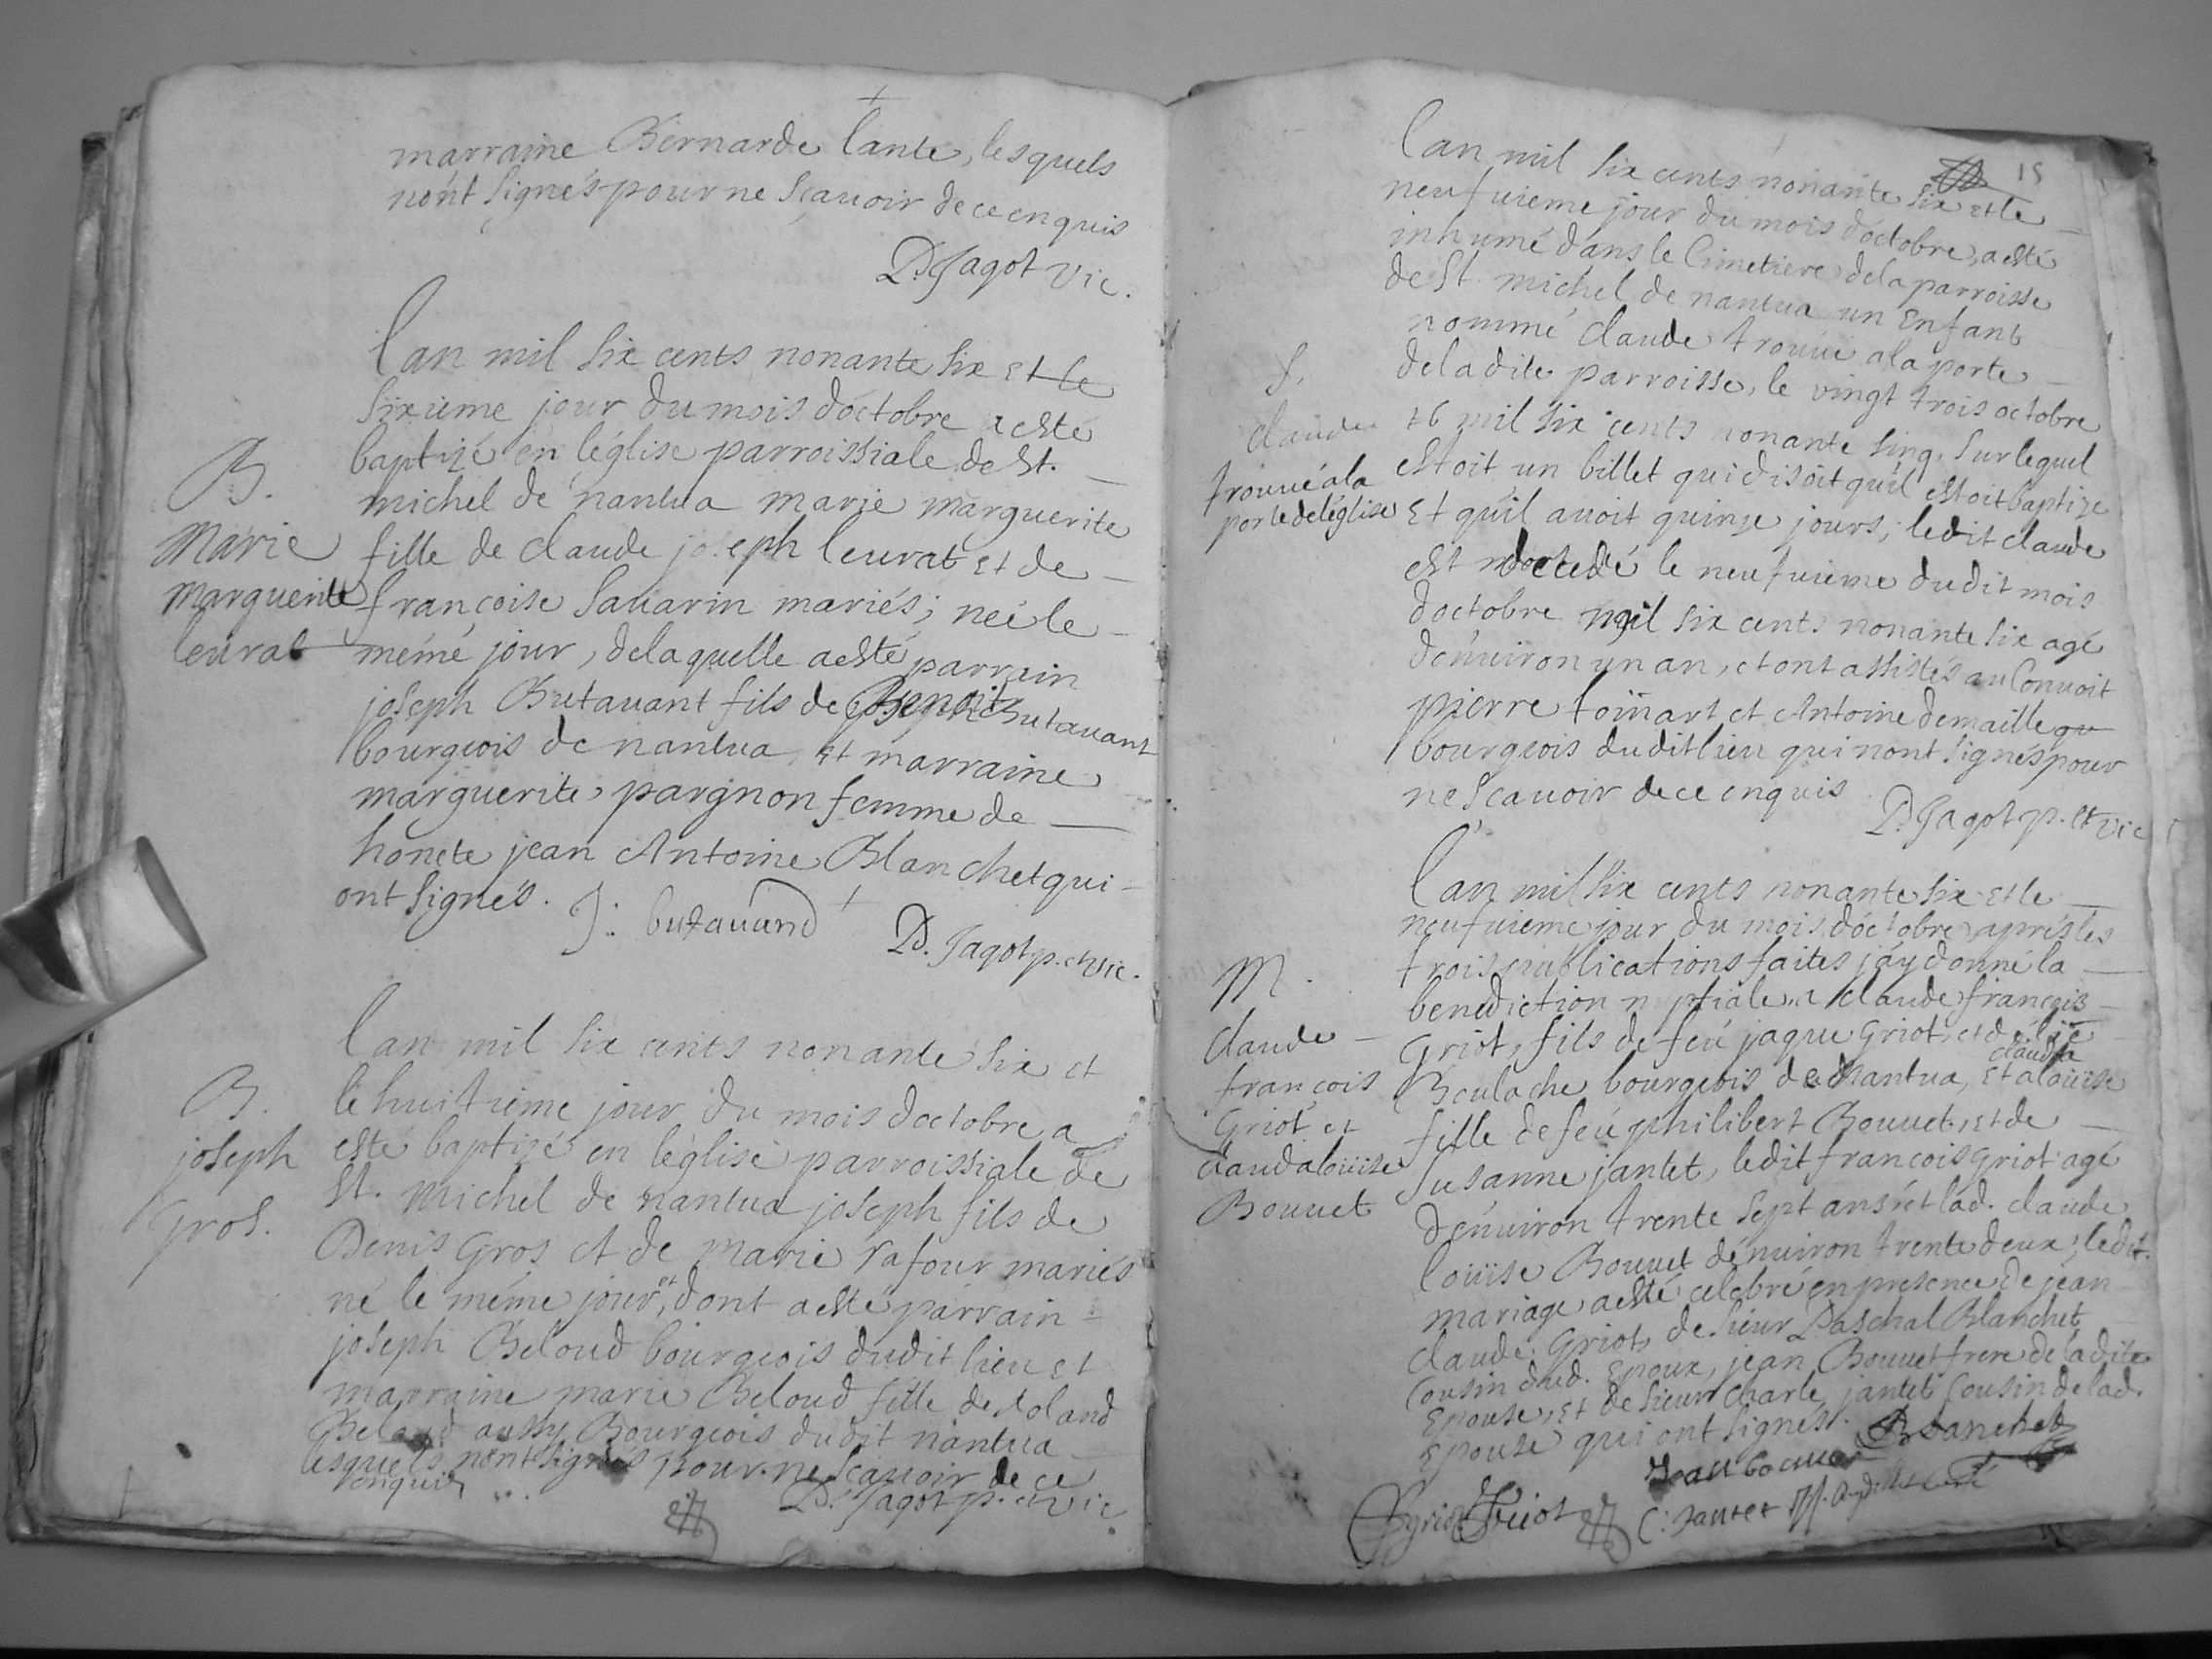 marraine Bernarde lante, lesquels
nont signés pour ne sçauoir de ce enquis
D. Jagot vic.
lan mil six cents nonante six et le
sixieme jour du mois doctobre a esté
baptizé en léglise parroissiale de St.
michel de nantua marie marguerite
fille de claude joseph leurat et de
françoise sauarin mariés; neé le
mémé jour, de laquelle a esté parrein
joseph Butauant fils de Butauant
bourgeois de nantua, et marraine
marguerite pargnon femme de
honete jean Antoine Blanchet qui
ont signés. J: butauand
D. Jagot p. et vic.
B.
Marie
marguerite
leurat
lan mil six cents nonante six et
le huitieme jour du mois doctobre a
esté baptizé en léglise parroissiale de
St. michel de nantua joseph fils de
Denis Gros et de marie rafour mariés
né le méme jour, et dont a esté parrain
joseph Beloud bourgeois dudit lieu et
marraine marie Beloud fille de Roland
Beloud aussy Bourgeois dudit nantua
lesquels nont signés pour ne scauoir de ce
enquis
D. Jagot p. et vic
B.
joseph
Gros.
15
lan mil six cents nonante six et le
neufuieme jour du mois doctobre, a esté
inhumé dans le Cimetiere de la parroisse
de St. michel de nantua un Enfant
nommé claude trouué a la porte
de la dite parroisse, le vingt trois octobre
mil six cents nonante sinq. sur lequel
estoit un billet qui disoit quil estoit baptize
et quil auoit quinze jours; ledit claude
est decedé le neufuieme dudit mois
doctobre mil six cents nonante six agé
denuiron un an, et ont assistés au Conuoit
pierre toinart et Antoine demaille
bourgeois dudit lieu qui nont signés pour
ne scauoir de ce enquis
D. Jagot p. et vic
S.
claude
trouué a la
porte de léglise
lan mil six cents nonante six et le
neufuieme jour du mois doctobre apres les
trois publications faites jáy donné la
benediction nuptiale a claude françois
Griot, fils de feu jaque Griot, et délie
Beulache bourgeois de Nantua, et a clauda loüise
fille de feu philibert Bouuet, et de
susanne jantet, ledit francois Griot agé
denuiron trente sept ans et lad. claude
loüise Bouuet dénuiron trente deux; ledit
mariage a esté celebré en presence de jean
claude Griot, de sieur Paschal Blanchet
cousin dud. Epoux, jean Bouuet frere de la dite
Epouse, et de sieur Charle jantet cousin de lad.
Epouse qui ont signés. Blanchet
Griot C: Jantet
M.
claude
françois
Griot et
clauda loüise
Bouuet